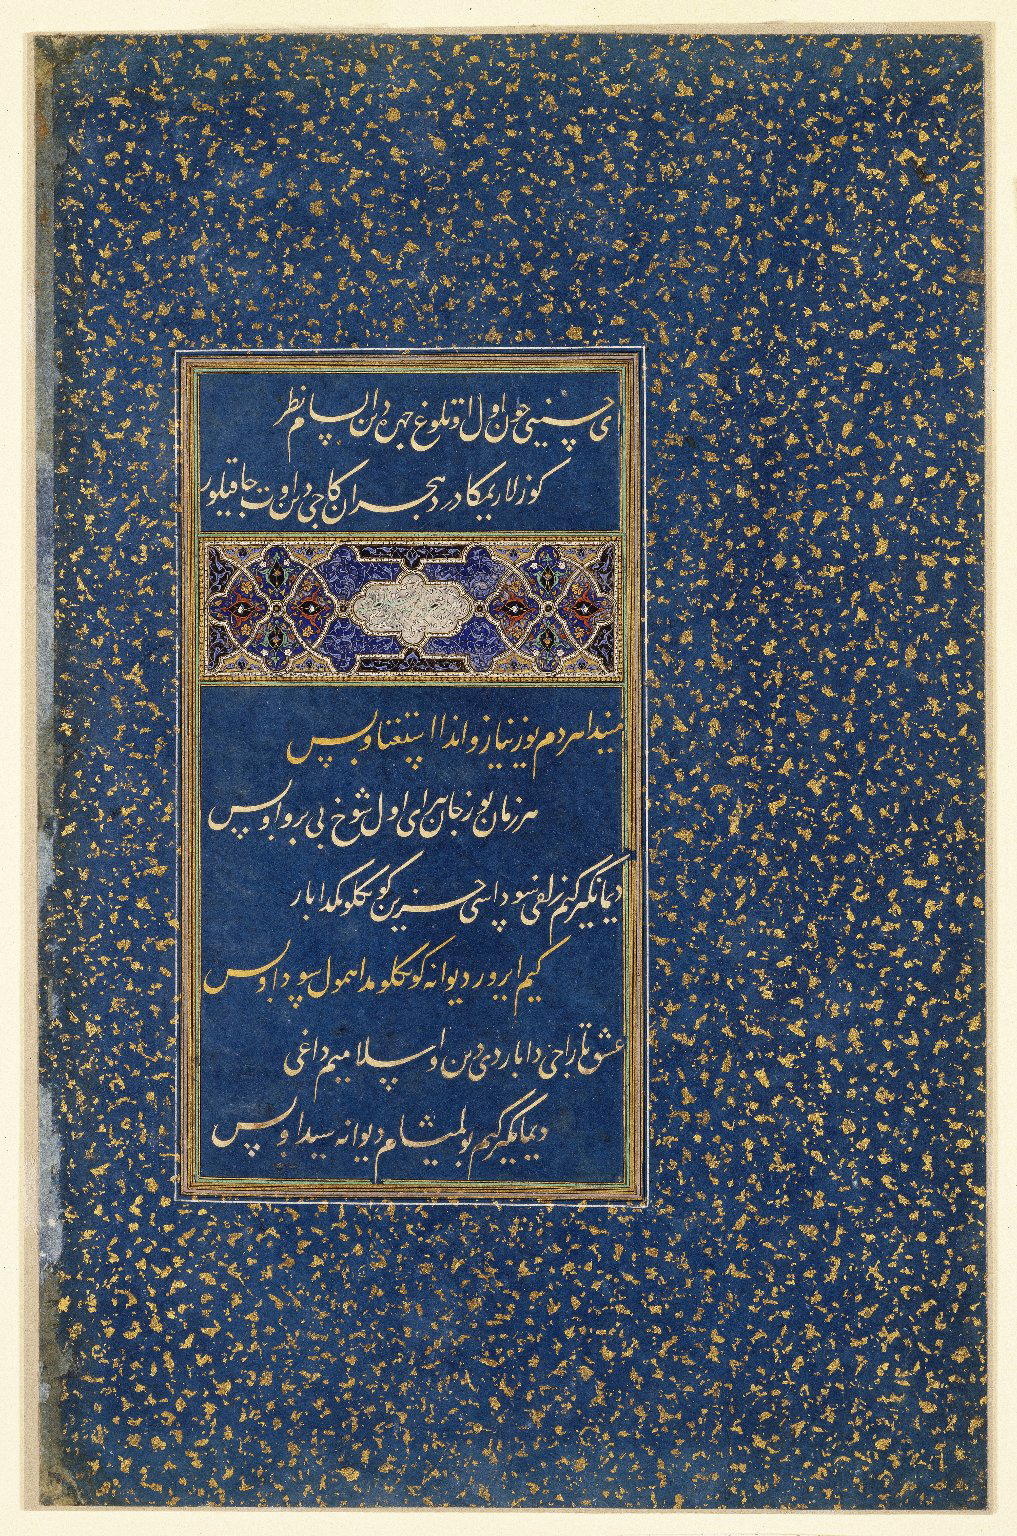 ای حسینی چون اول اوتلوغ چهره دین السام نظر
کوزلاریمکا درد هجران کاجی دین اوت چاقیلور
مندا هردم یوز نیاز و اندا استغنا و بس
هر زمان یوز جان برای اول شوخ بی پروا و بس
دیمانکیز کیم زلفی سوداسی حزین کونکلومکدا بار
کیم ایرور دیوانه کونکلومدا همول سودا و بس
عشق تاراجی دا باردی دین و اسلامیم داغی
دیمانکیز کیم بولمیشام دیوانه شیدا و بس